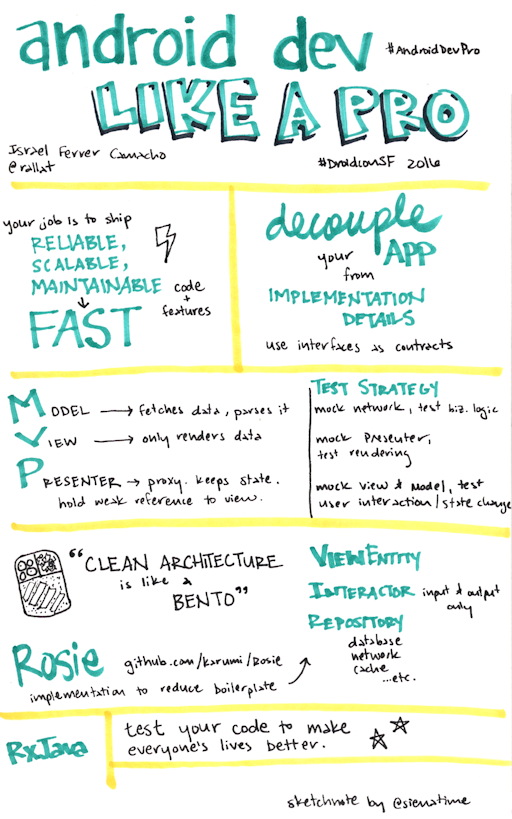 android dev #AndroidDevPro
LIKE A PRO
Israel Ferrer Camacho
@rallat
#DroidconSF 2016
your job is to ship
RELIABLE,
SCALABLE,
MAINTAINABLE code
+
features
FAST
decouple
your APP
from
IMPLEMENTATION
DETAILS
use interfaces as contracts
MODEL → fetches data, parses it
VIEW → only renders data
PRESENTER → proxy. keeps state.
hold weak reference to view.
TEST STRATEGY
mock network, test biz. logic
mock presenter,
test rendering
mock view & model, test
user interaction/state change
"CLEAN ARCHITECTURE
is like a
BENTO"
VIEWENTITY
INTERACTOR input & output
only
REPOSITORY
database
network
cache
...etc.
Rosie github.com/karumi/Rosie
implementation to reduce boilerplate
RxJava
test your code to make
everyone's lives better.
sketchnote by @sienatime